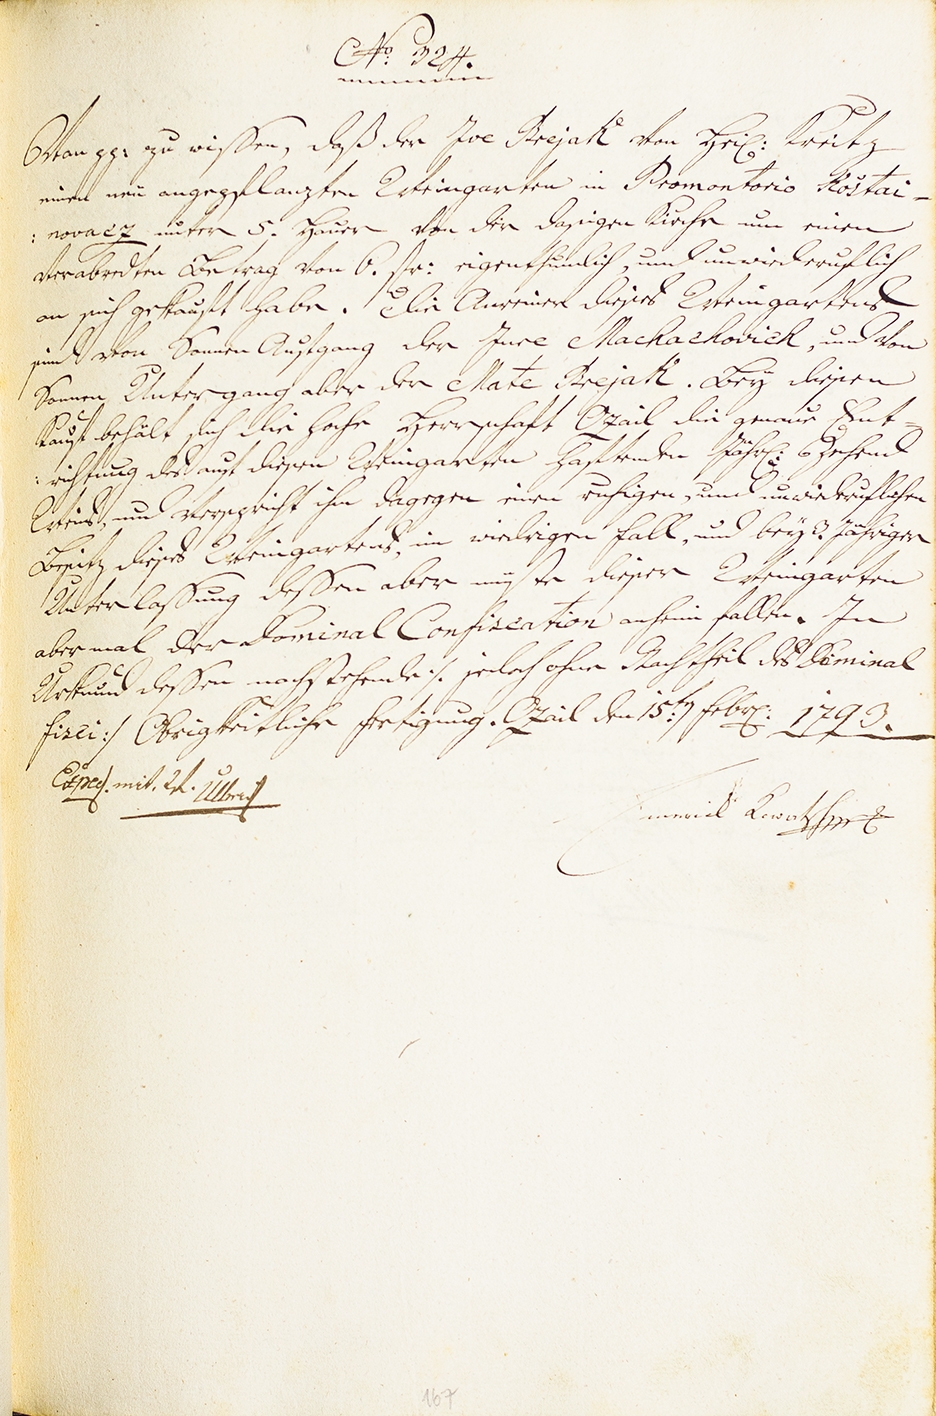 No. 324.
Von pp: zu wissen, daß der Ive Brejak von Heil: Kreitz
einen neu angepflanzten Weingarten in Promontorio Kostai-
:novacz unter 5. Hauer von der dasigen Kirche um einen
verabredten Betrag von 6. fr: eigenthumlich, und unwiederuflich
an sich gekauft habe. Die Anreiner dieses Weingartens
sind von Sonnen Aufgang der Ivre Machachovich, und von
Sonnen Untergang aber der Mate Brejak. Bey diesen
Kauf behält sich die hohe Herrschaft Ozail die genaue Ent=
:richtung des auf diesen Weingarten haftenden Jährl: Zehend
Weins, und verspricht ihm dagegen einen ruhigen, und unwiederuflichen
Besitz dieses Weingartens, im wiedrigen Fall, und bey 3. Jähriger
Unterlassung dessen aber müste dieser Weingarten
abermal der Dominal Confiscation anheim fallen. In
Urkund dessen nachstehende :/. jedoch ohne Nachtheil des Dominal
fisci :/ Obrigkeitliche Fertigung. Ozail den 15ten Febr: 1793.
Exped. mit. 2 f.
Emerick
167